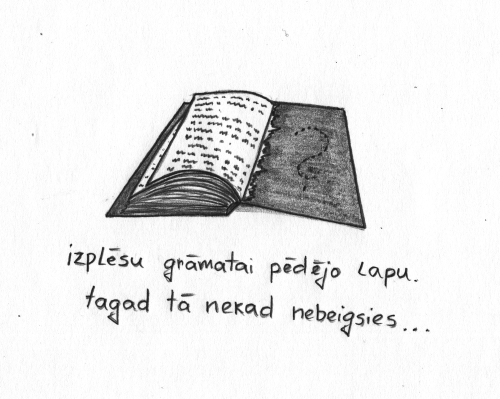 izplēsu grāmatai pēdējo lapu.
tagad tā nekad nebeigsies...